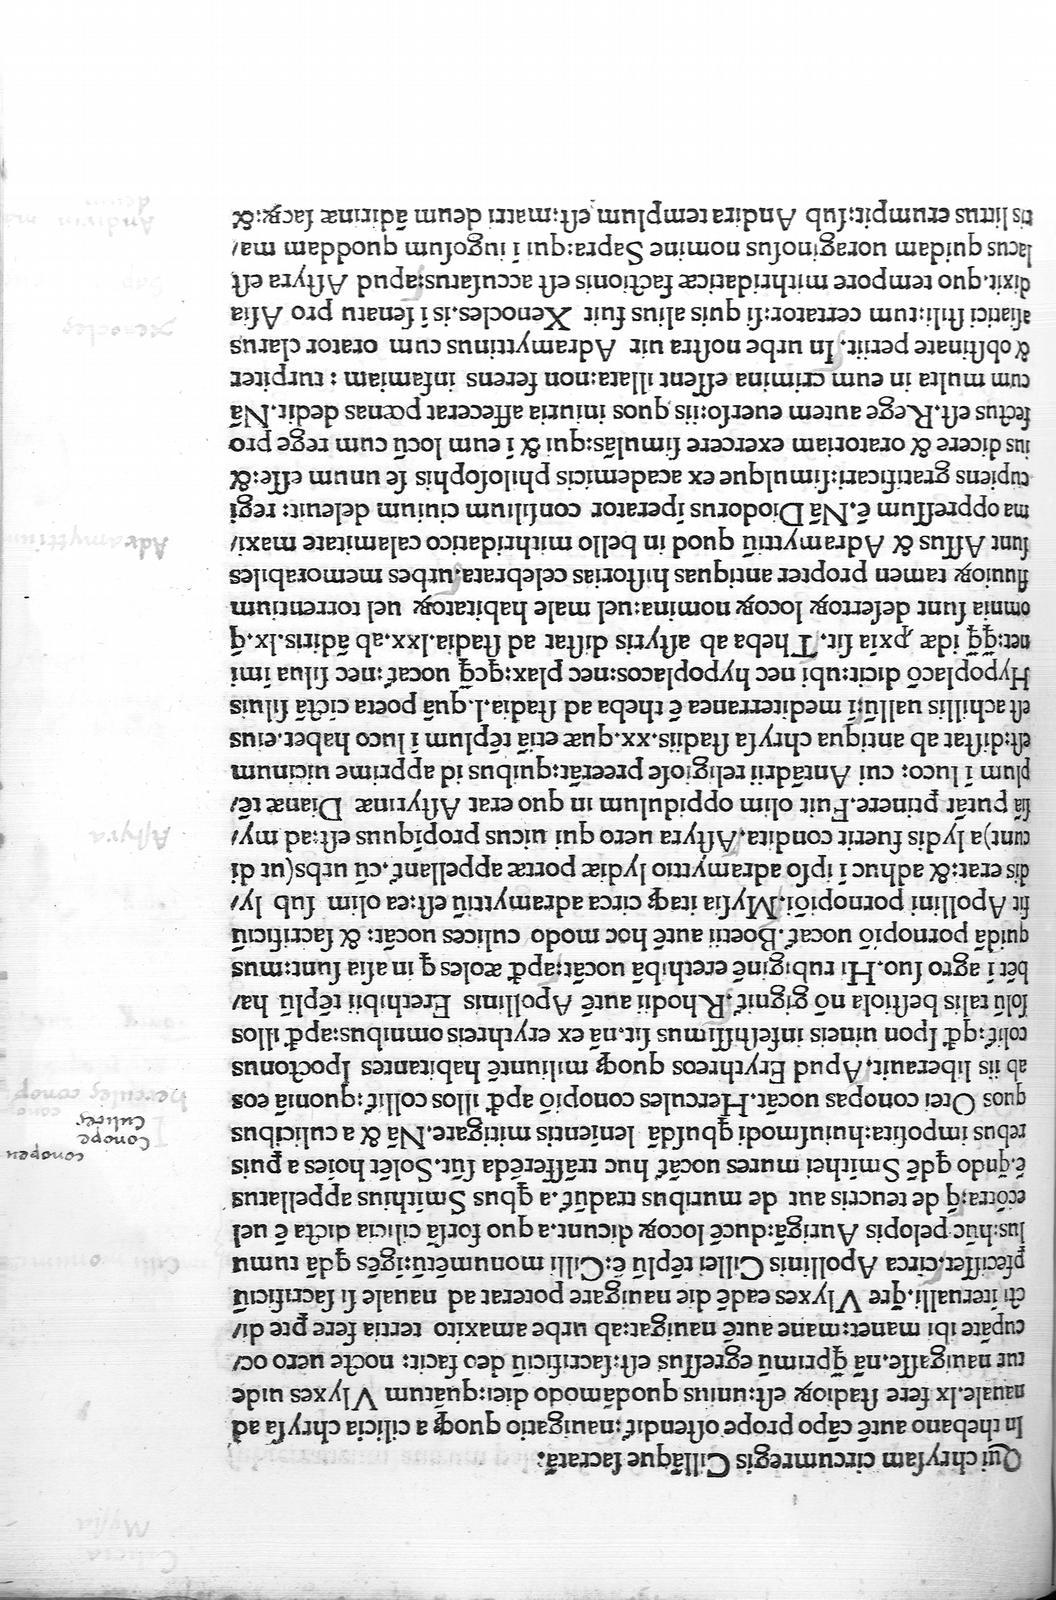 Qui chrysam circumregis Cillāque sacratā:
In thebano autē cāpo prope ostendit̃: nauigatio quoqꝫ a cilicia chrysa ad
nauale.lx fere stadioꝝ est: unius quodāmodo diei: quātum Vlyxes uide
tur nauigasse.nā ꝗprimū egressus est: sacrificiū deo facit: nocte uero oc/
cupāte ibi manet: mane autē nauigat: ab urbe amaxito tertia fere pte di/
cti ĩterualli.qre Vlyxes eadē die nauigare poterat ad nauale si sacrificiū
pfecisset.circa Apollinis Cillei tēplū ē: Cilli monumētū: ĩgēs qdā tumu
lus: huc pelopis Aurigā: ducē locoꝝ dicunt.a quo forsā cilicia dicta ē uel
ecōtra: ꝗ de teucris aut de muribus tradūt̃.a qbus Smithius appellatus
ē.qñdo qdē Smithei mures uocāt̃ huc trāsferēda sūt.Solēt hoīes a puis
rebus imposita: huiusmodi qbusdā lenientis mitigare.Nā & a culicibus
quos Oeti conopas uocāt.Hercules conopiō apđ illos collit̃: quoniā eos
ab iis liberauit.Apud Erythreos quoqꝫ miliuntē habitantes Ipoctonus
colit̃: qđ Ipon uineis infestissimus sit.nā ex erythreis omnibus: apđ illos
solū talis bestiola nō gignit̃.Rhodii autē Apollinis Erethibii tēplū ha/
bēt ĩ agro suo.Hi rubiginē erethibā uocāt: apđ æoles ꝗ in asia sunt: mus
quidā pornopiō uocat̃.Boetii autē hoc modo culices uocāt: & sacrificiū
fit Apollini pornopiōi.Mysia itaqꝫ circa adramyttiū est: ea olim sub ly/
dis erat: & adhuc ĩ ipso adramyttio lydiæ portæ appellant̃.cū urbs(ut di
cunt)a lydis fuerit condita.Astyra uero qui uicus propĩquus est: ad my/
siā putāt ptinere.Fuit olim oppidulum in quo erat Astyrinæ Dianæ tē/
plum ĩ luco: cui Antādrii religiose preerāt: quibus id apprime uicinum
est: distat ab antiqua chrysa stadiis.xx.quæ etiā tēplum ĩ luco habet.eius
est achillis uallū: ĩ mediterranea ē theba ad stadia.l.quā poeta cictā siluis
Hypoplacō dicit: ubi nec hypoplacos: nec plax: qcꝗ uocat̃: nec silua imi
net: ꝗꝗ idæ ꝓxia sit.Theba ab astyris distat ad stadia.lxx.ab ādiris.lx.ꝗ
omnia sunt desertoꝝ locoꝝ nomina: uel male habitatoꝝ uel torrentium
fluuioꝝ tamen propter antiquas historias celebrata: urbes memorabiles
sunt Assus & Adramyttiū quod in bello mithridatico calamitate maxi/
ma oppressum ē.Nā Diodorus ĩperator consilium ciuium deleuit: regi
cupiens gratificari: simulque ex academicis philosophis se unum esse: &
ius dicere & oratoriam exercere simulās: qui & ĩ eum locū cum rege pro
fectus est.Rege autem euerso: iis quos iniuria affecerat pœnas dedit.Nā
cum multa in eum crimina essent illata: non ferens infamiam: turpiter
& obstinate periit.In urbe nostra uir Adramyttinus cum orator clarus
asiatici stili: tum certator: si quis alius fuit Xenocles.is ĩ senatu pro Asia
dixit.quo tempore mithridaticæ factionis est accusatus: apud Astyra est
lacus quidam uoraginosus nomine Sapra: qui ĩ iugosum quoddam ma/
ris littus erumpit: sub Andira templum est: matri deum ādirinæ sacꝝ: &
conopeu
Conope
Culices
Adramyttium
Xenocles
Astyra